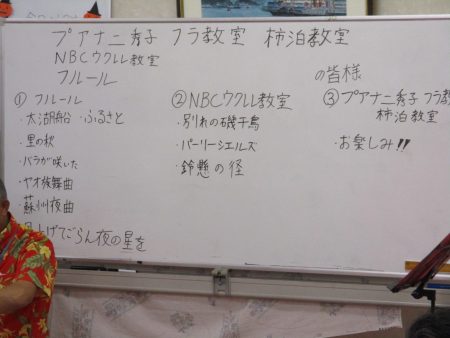 プアナニ秀子 フラ教室 柿泊教室
NBCウクレレ教室
フルール
の皆様
① フルール
・大湖船 ・ふるさと
・里の秋
・バラが咲いた
・ヤオ族舞曲
・蘇州夜曲
上げてごらん夜の星を
② NBCウクレレ教室
・別れの磯千鳥
・パーリーシェルズ
・鈴懸の径
③ プアナニ秀子 フラ教室
柿泊教室
・お楽しみ!!